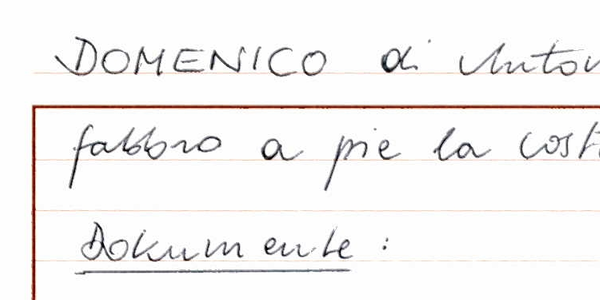 DOMENICO di Anton
fabbro a pie la cost
Dokumente :